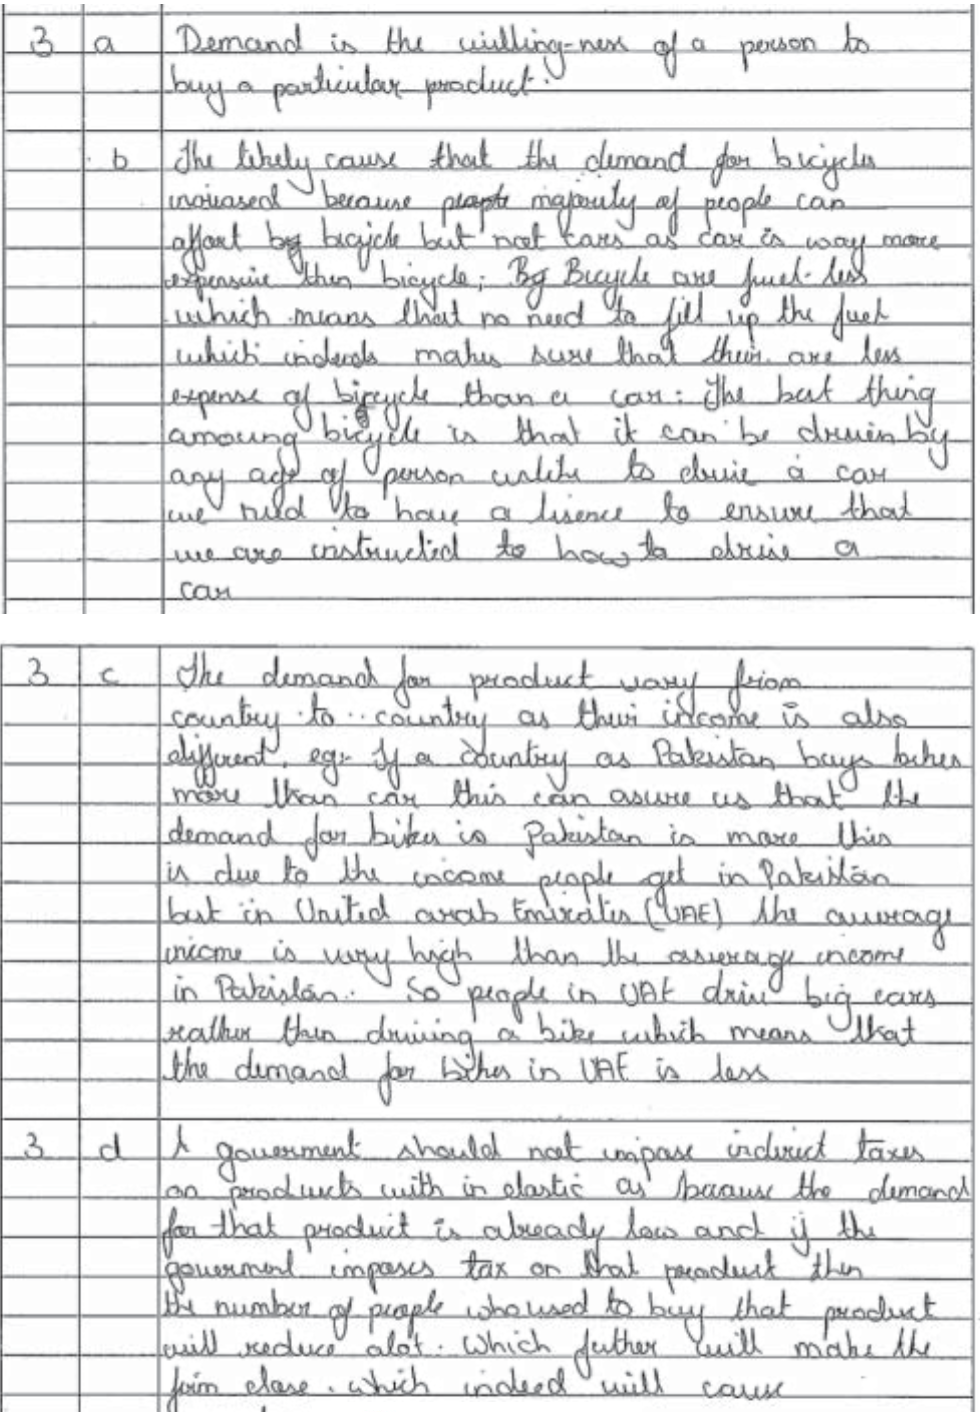 3 a Demand is the willing-ness of a person to
buy a particular product.
b The likely cause that the demand for bicycles
increased because people majority of people can
affort by bicycle but not cars as car is way more
expensive then bicycle; By Bicycle are fuel-less
which means that no need to fill up the fuel
which indeeds makes sure that their are less
expense of bicycle than a car. The best thing
amoung bicycle is that it can be driven by
any age of person unlike to drive a car
we need to have a lisence to ensure that
we are instructed to how to drive a
car
3 c The demand for product vary from
country to country as their income is also
different. eg:- If a country as Pakistan buys bikes
more than car this can asure us that the
demand for bikes is Pakistan is more this
is due to the income people get in Pakistan
but in United arab Emirates (UAE) the average
income is very high than the average income
in Pakistan. So people in UAE drive big cars
rather then driving a bike which means that
the demand for bikes in UAE is less
3 d A government should not impose indirect taxes
on products with in elastic as because the demand
for that product is already low and if the
government imposes tax on that product then
the number of people who used to buy that product
will reduce alot. Which futher will make the
firm close. which indeed will cause